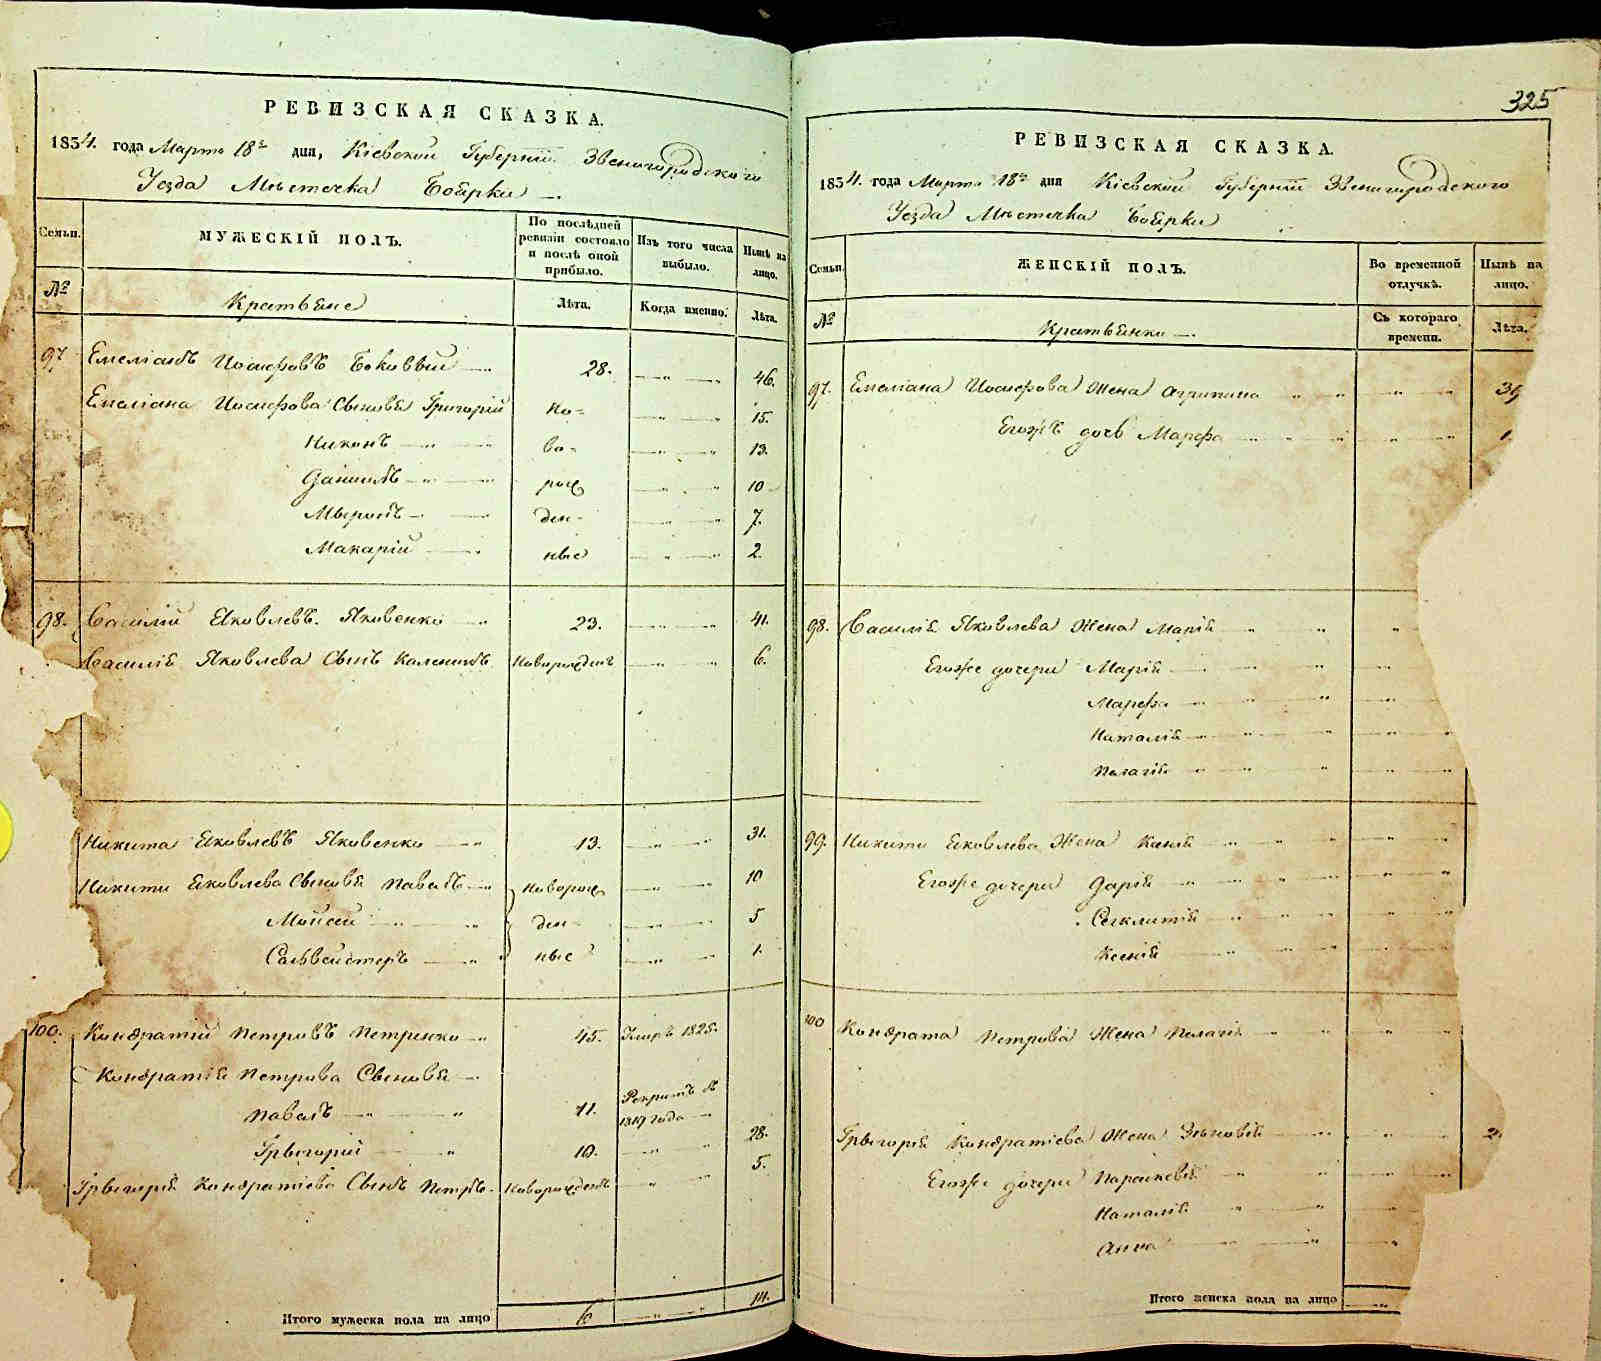 РЕВИЗСКАЯ СКАЗКА.
1854. года Марта 18го дня, Кіевской Губерніи Звенигородского
Уезда Мѣстечка Боярки
Семьи.
МУЖЕСКІЙ ПОЛЪ.
По послѣдней ревизіи состояло и послѣ оной прибыло.
Изъ того числа выбыло.
Нынѣ на лицо.
№
Крестьяне
Лѣта.
Когда именно.
Лѣта.
97 Емеліанъ Иосифовъ 28. 46.
Емеліана Иосифова Сыновья Григорій но- 15.
Никонъ во- 13.
Даніилъ рож 10
Мыронъ ден- 7.
Макарій ные 2.
98. Василій Яковлевъ Яковенко 23. 41.
Василія Яковлева Сынъ Каленикъ Новорожденъ 6.
Никита Яковлевъ Яковенко 13. 31.
Никиты Яковлева Сыновья Павелъ новорож 10
Мойсей ден- 5
Сальвестеръ ные 1.
100. Кондратій Петровъ Петренко 45. Умеръ 1825.
Кондратія Петрова Сыновья
Павелъ 11. Рекрутъ
года
Грыгорій 10. 28.
Грыгорія Кондратіева Сынъ Петръ Новорожденъ 5.
Итого мужеска пола на лицо 6 14.
325
РЕВИЗСКАЯ СКАЗКА.
1854. года Марта 18го дня Кіевской Губерніи Звенигородского
Уезда Мѣстечка Боярки
Семьи.
ЖЕНСКІЙ ПОЛЪ.
Во временной отлучкѣ.
Нынѣ на лицо.
№
Крестьянки
Съ котораго времени.
Лѣта.
97. Емеліана Иосифова Жена Агрипина
Егожъ дочь Марфа
98. Василія Яковлева Жена Марія
Егоже дочери Марія
Марфа
Наталія
Палагія
99. Никиты Яковлева Жена
Егоже дочери Дарія
Секлитія
Ксенія
100 Кондрата Петрова Жена Палагія
Грыгорія Кондратіева Жена Зѣновія 2
Егоже дочери Параскевія
Наталія
Анна
Итого женска пола на лицо